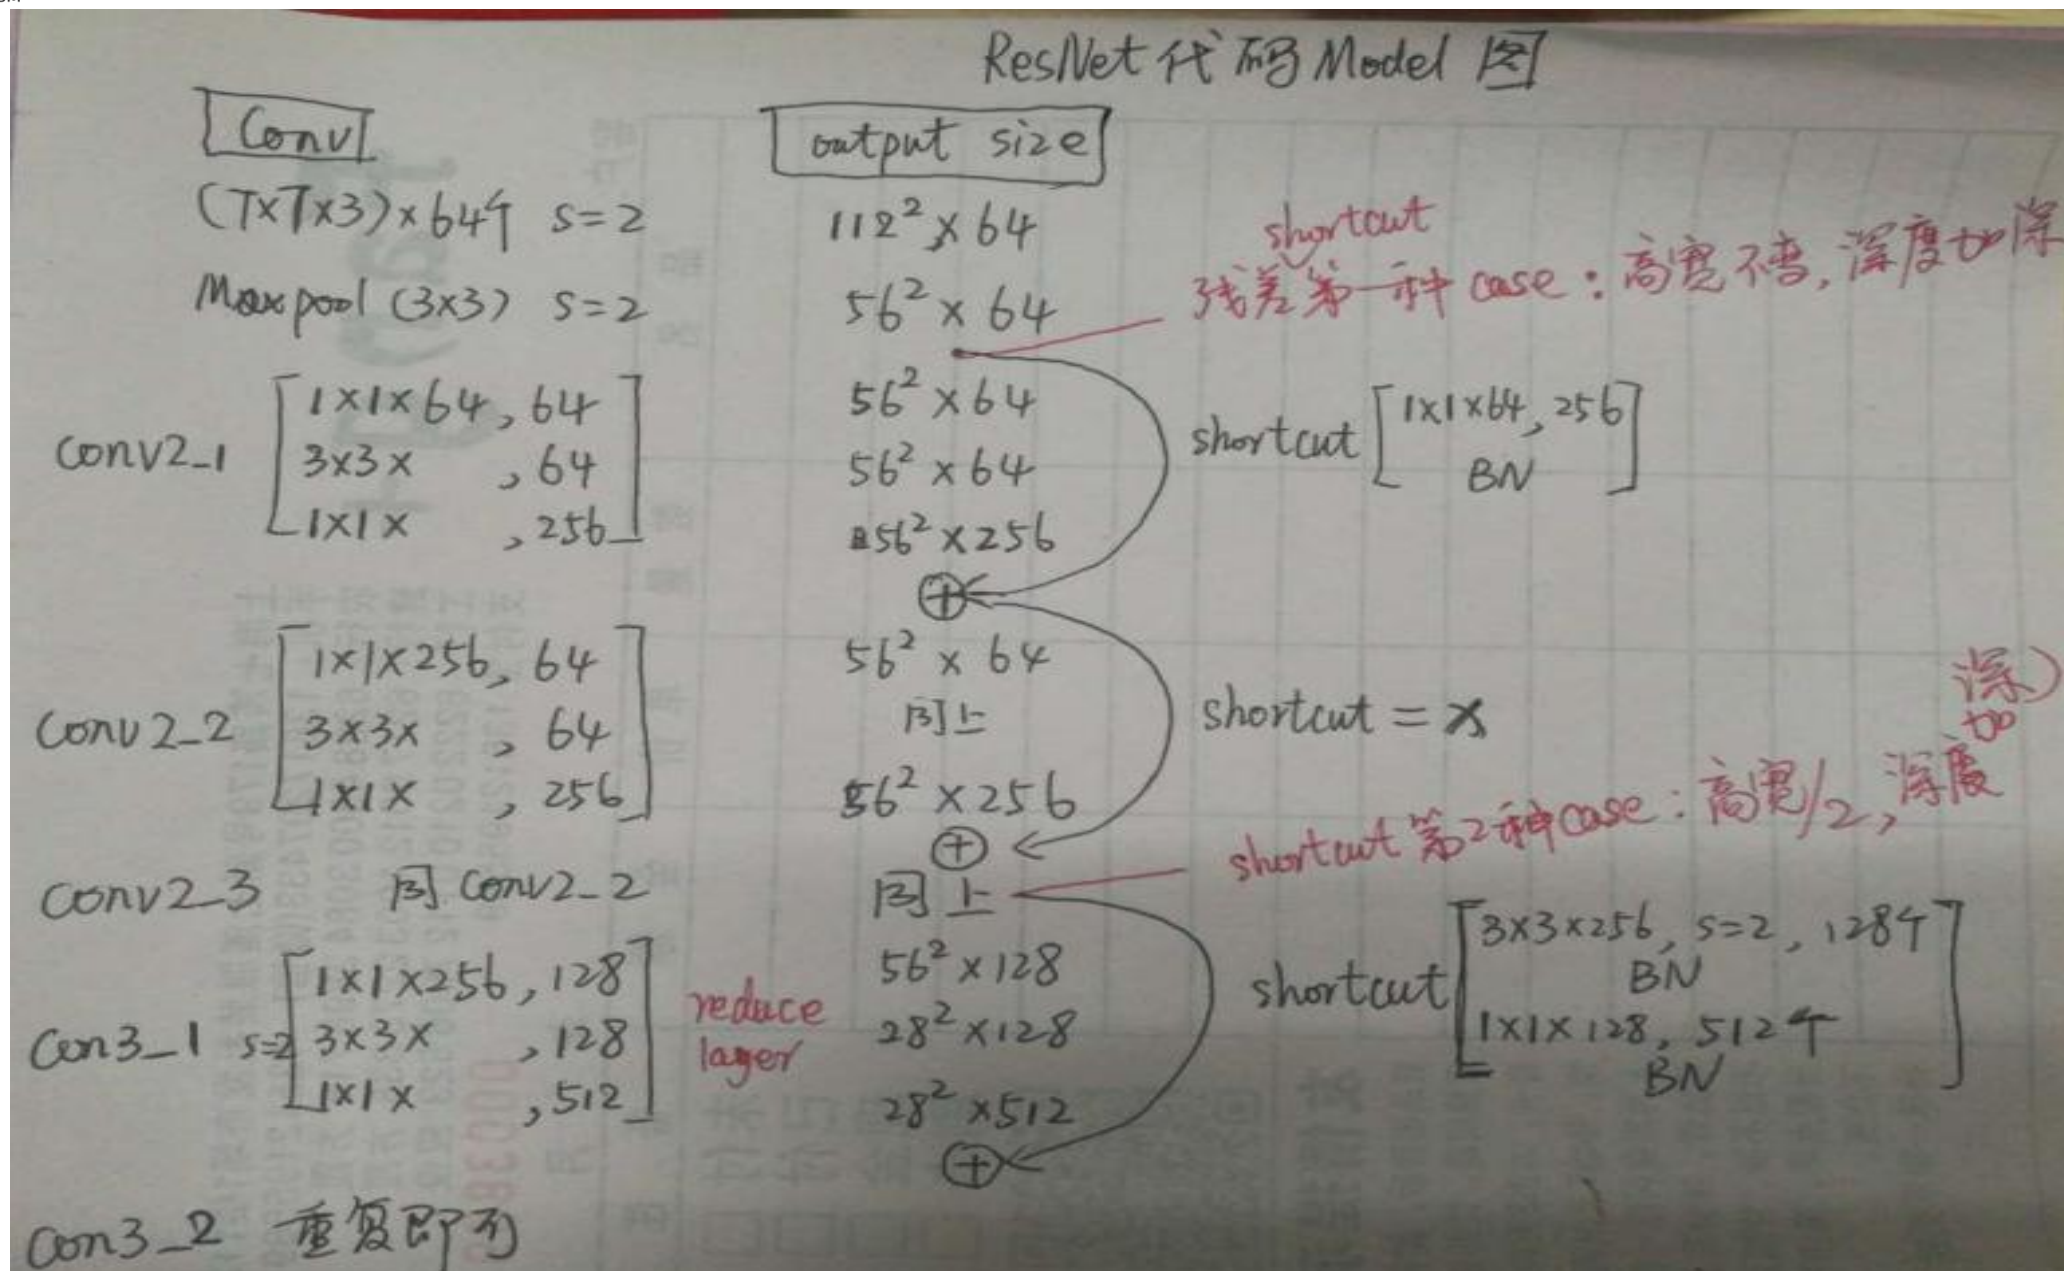 ResNet 代码 Model 图
Conv
output size
(7x7x3)x64个 s=2
112² x 64
shortcut
残差第一种 case：高宽不变，深度加深
Maxpool (3x3) s=2
56² x 64
conv2_1
1x1x64, 64
3x3x , 64
1x1x , 256
56² x 64
56² x 64
56² x 256
shortcut
1x1x64, 256
BN
conv2_2
1x1x256, 64
3x3x , 64
1x1x , 256
56² x 64
同上
56² x 256
shortcut = x
shortcut 第2种case：高宽/2, 深度加深)
conv2_3 同 conv2_2
同上
con3_1 s=2
1x1x256, 128
3x3x , 128
1x1x , 512
reduce
layer
56² x 128
28² x 128
28² x 512
shortcut
3x3x256, s=2, 128个
BN
1x1x128, 512个
BN
con3_2 重复即可